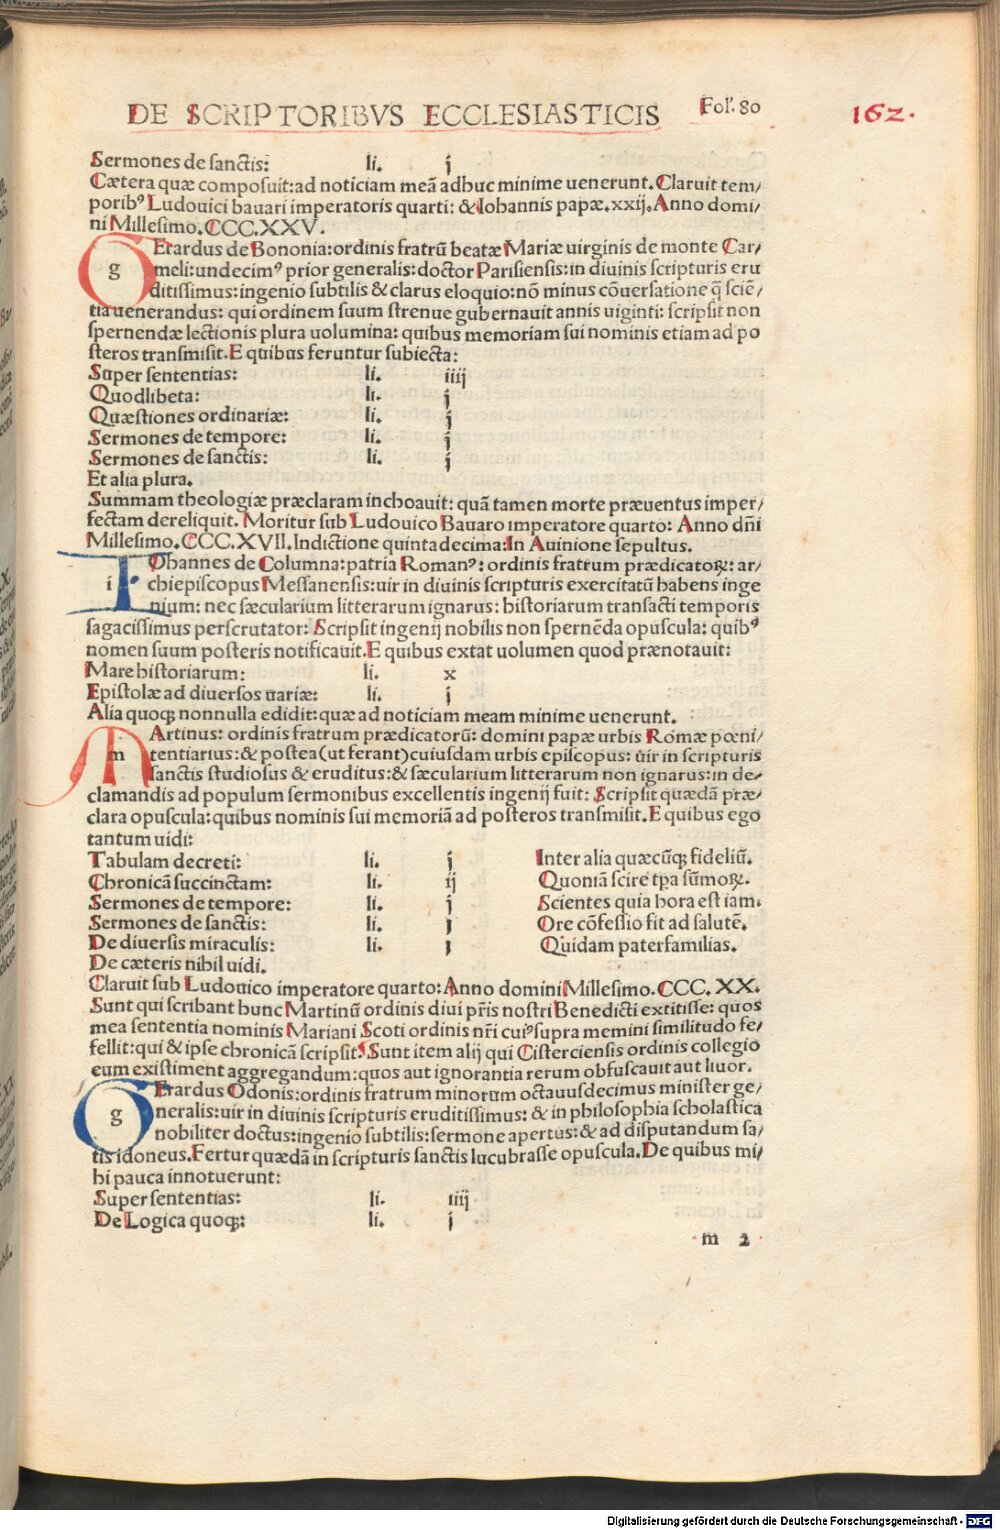 DE SCRIPTORIBVS ECCLESIASTICIS Fol. 80 162.
Sermones de sanctis: li. j
Cætera quæ composuit: ad noticiam meā adhuc minime uenerunt. Claruit tem/
poribꝰ Ludouici bauari imperatoris quarti: & Iohannis papæ.xxij. Anno domi/
ni Millesimo.CCC.XXV.
g
GErardus de Bononia: ordinis fratrū beatæ Mariæ uirginis de monte Car/
meli: undecimꝰ prior generalis: doctor Parisiensis: in diuinis scripturis eru
ditissimus: ingenio subtilis & clarus eloquio: nō minus cōuersatione q̄ sciē/
tia uenerandus: qui ordinem suum strenue gubernauit annis uiginti: scripsit non
spernendæ lectionis plura uolumina: quibus memoriam sui nominis etiam ad po
steros transmisit. E quibus feruntur subiecta:
Super sententias: li. iiij
Quodlibeta: li. j
Quæstiones ordinariæ: li. j
Sermones de tempore: li. j
Sermones de sanctis: li. j
Et alia plura.
Summam theologiæ præclaram inchoauit: quā tamen morte præuentus imper/
fectam dereliquit. Moritur sub Ludouico Bauaro imperatore quarto: Anno dñi
Millesimo.CCC.XVII. Indictione quintadecima: In Auinione sepultus.
i
IOhannes de Columna: patria Romanꝰ: ordinis fratrum prædicatoꝝ: ar/
chiepiscopus Messanensis: uir in diuinis scripturis exercitatū habens inge
nium: nec sæcularium litterarum ignarus: historiarum transacti temporis
sagacissimus perscrutator: Scripsit ingenij nobilis non spernēda opuscula: quibꝰ
nomen suum posteris notificauit. E quibus extat uolumen quod prænotauit:
Mare historiarum: li. x
Epistolæ ad diuersos uariæ: li. j
Alia quoqꝫ nonnulla edidit: quæ ad noticiam meam minime uenerunt.
m
MArtinus: ordinis fratrum prædicatorū: domini papæ urbis Romæ pœni/
tentiarius: & postea (ut ferant) cuiusdam urbis episcopus: uir in scripturis
sanctis studiosus & eruditus: & sæcularium litterarum non ignarus: in de/
clamandis ad populum sermonibus excellentis ingenij fuit: Scripsit quædā præ/
clara opuscula: quibus nominis sui memoriā ad posteros transmisit. E quibus ego
tantum uidi:
Tabulam decreti: li. j Inter alia quæcūqꝫ fideliū.
Chronicā succinctam: li. ij Quoniā scire tꝑa sūmoꝝ.
Sermones de tempore: li. j Scientes quia hora est iam.
Sermones de sanctis: li. j Ore cōfessio fit ad salutē.
De diuersis miraculis: li. j Quidam paterfamilias.
De cæteris nihil uidi.
Claruit sub Ludouico imperatore quarto: Anno domini Millesimo.CCC.XX.
Sunt qui scribant hunc Martinū ordinis diui p̄ris nostri Benedicti extitisse: quos
mea sententia nominis Mariani Scoti ordinis nr̄i cuiꝰ supra memini similitudo fe/
fellit: qui & ipse chronicā scripsit. Sunt item alij qui Cisterciensis ordinis collegio
eum existiment aggregandum: quos aut ignorantia rerum obfuscauit aut liuor.
g
GErardus Odonis: ordinis fratrum minorum octauusdecimus minister ge/
neralis: uir in diuinis scripturis eruditissimus: & in philosophia scholastica
nobiliter doctus: ingenio subtilis: sermone apertus: & ad disputandum sa/
tis idoneus. Fertur quædā in scripturis sanctis lucubrasse opuscula. De quibus mi/
hi pauca innotuerunt:
Super sententias: li. iiij
De Logica quoqꝫ: li. j
m 2
Digitalisierung gefördert durch die Deutsche Forschungsgemeinschaft - DFG